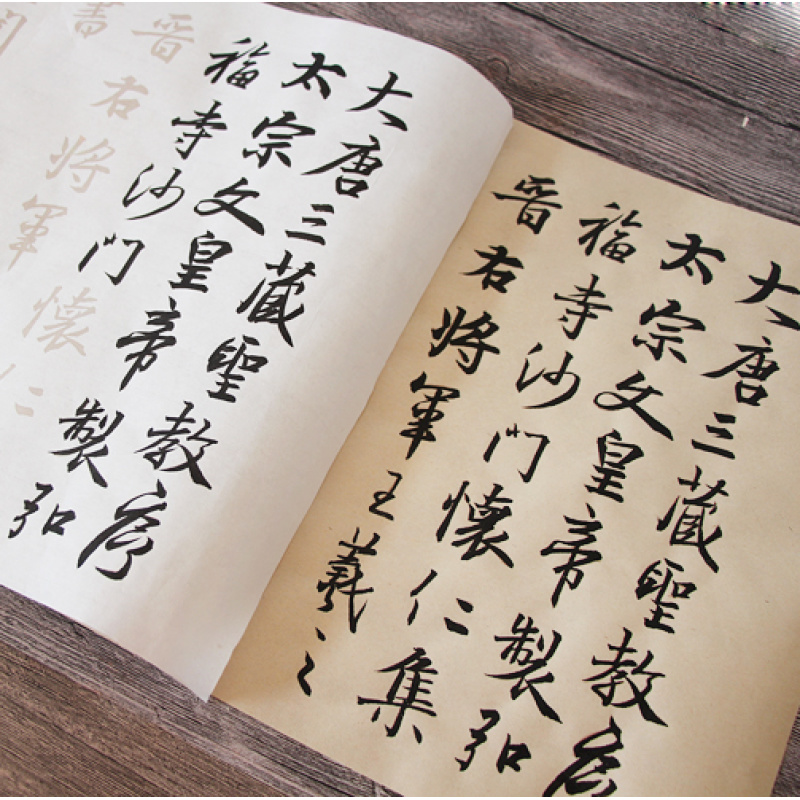 大唐三藏聖教序
太宗文皇帝製弘
福寺沙門懷仁集
晋右將軍王羲之
大唐三藏聖教序
太宗文皇帝製弘
福寺沙門懷仁
晋右將軍
書